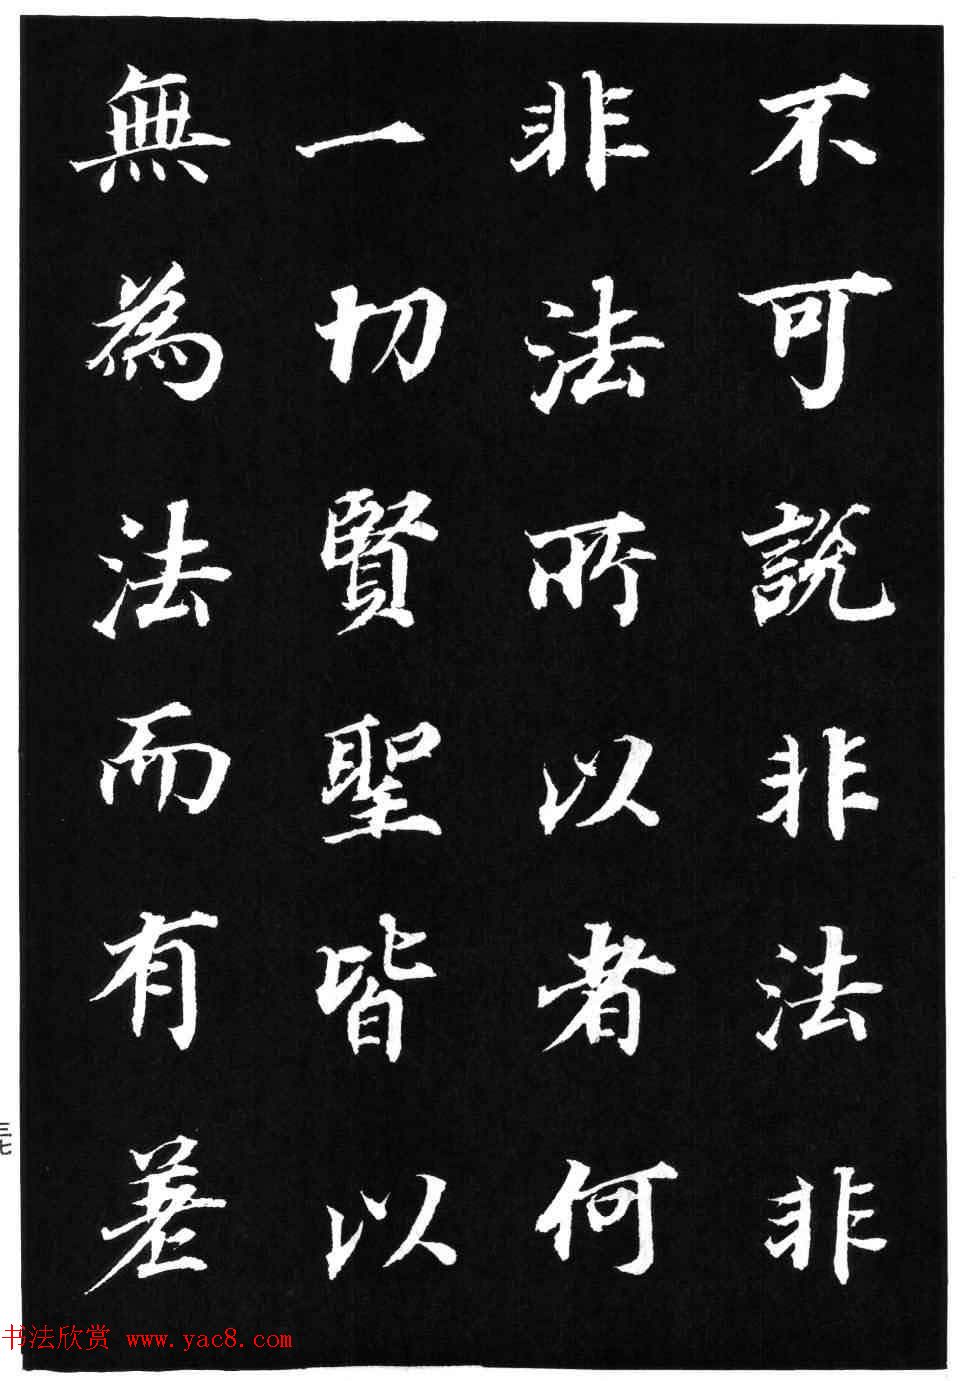 不可說非法非
非法所以者何
一切賢聖皆以
無為法而有差
三七
书法欣赏 www.yac8.com